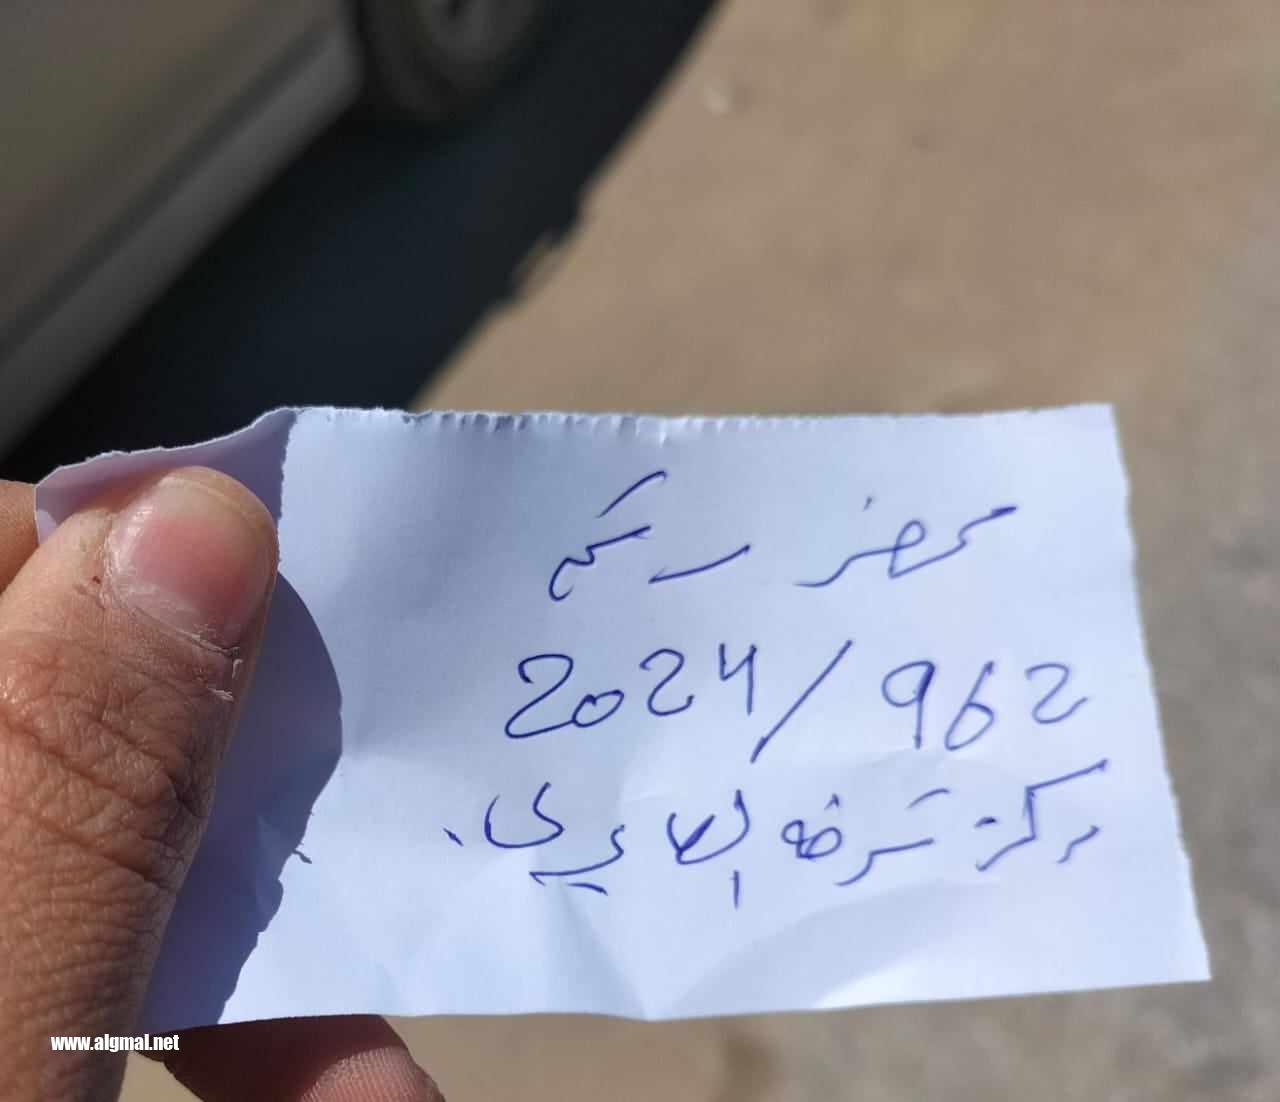 محضر رقم
2024/962
مركز شرطة الصابري.
www.algmal.net